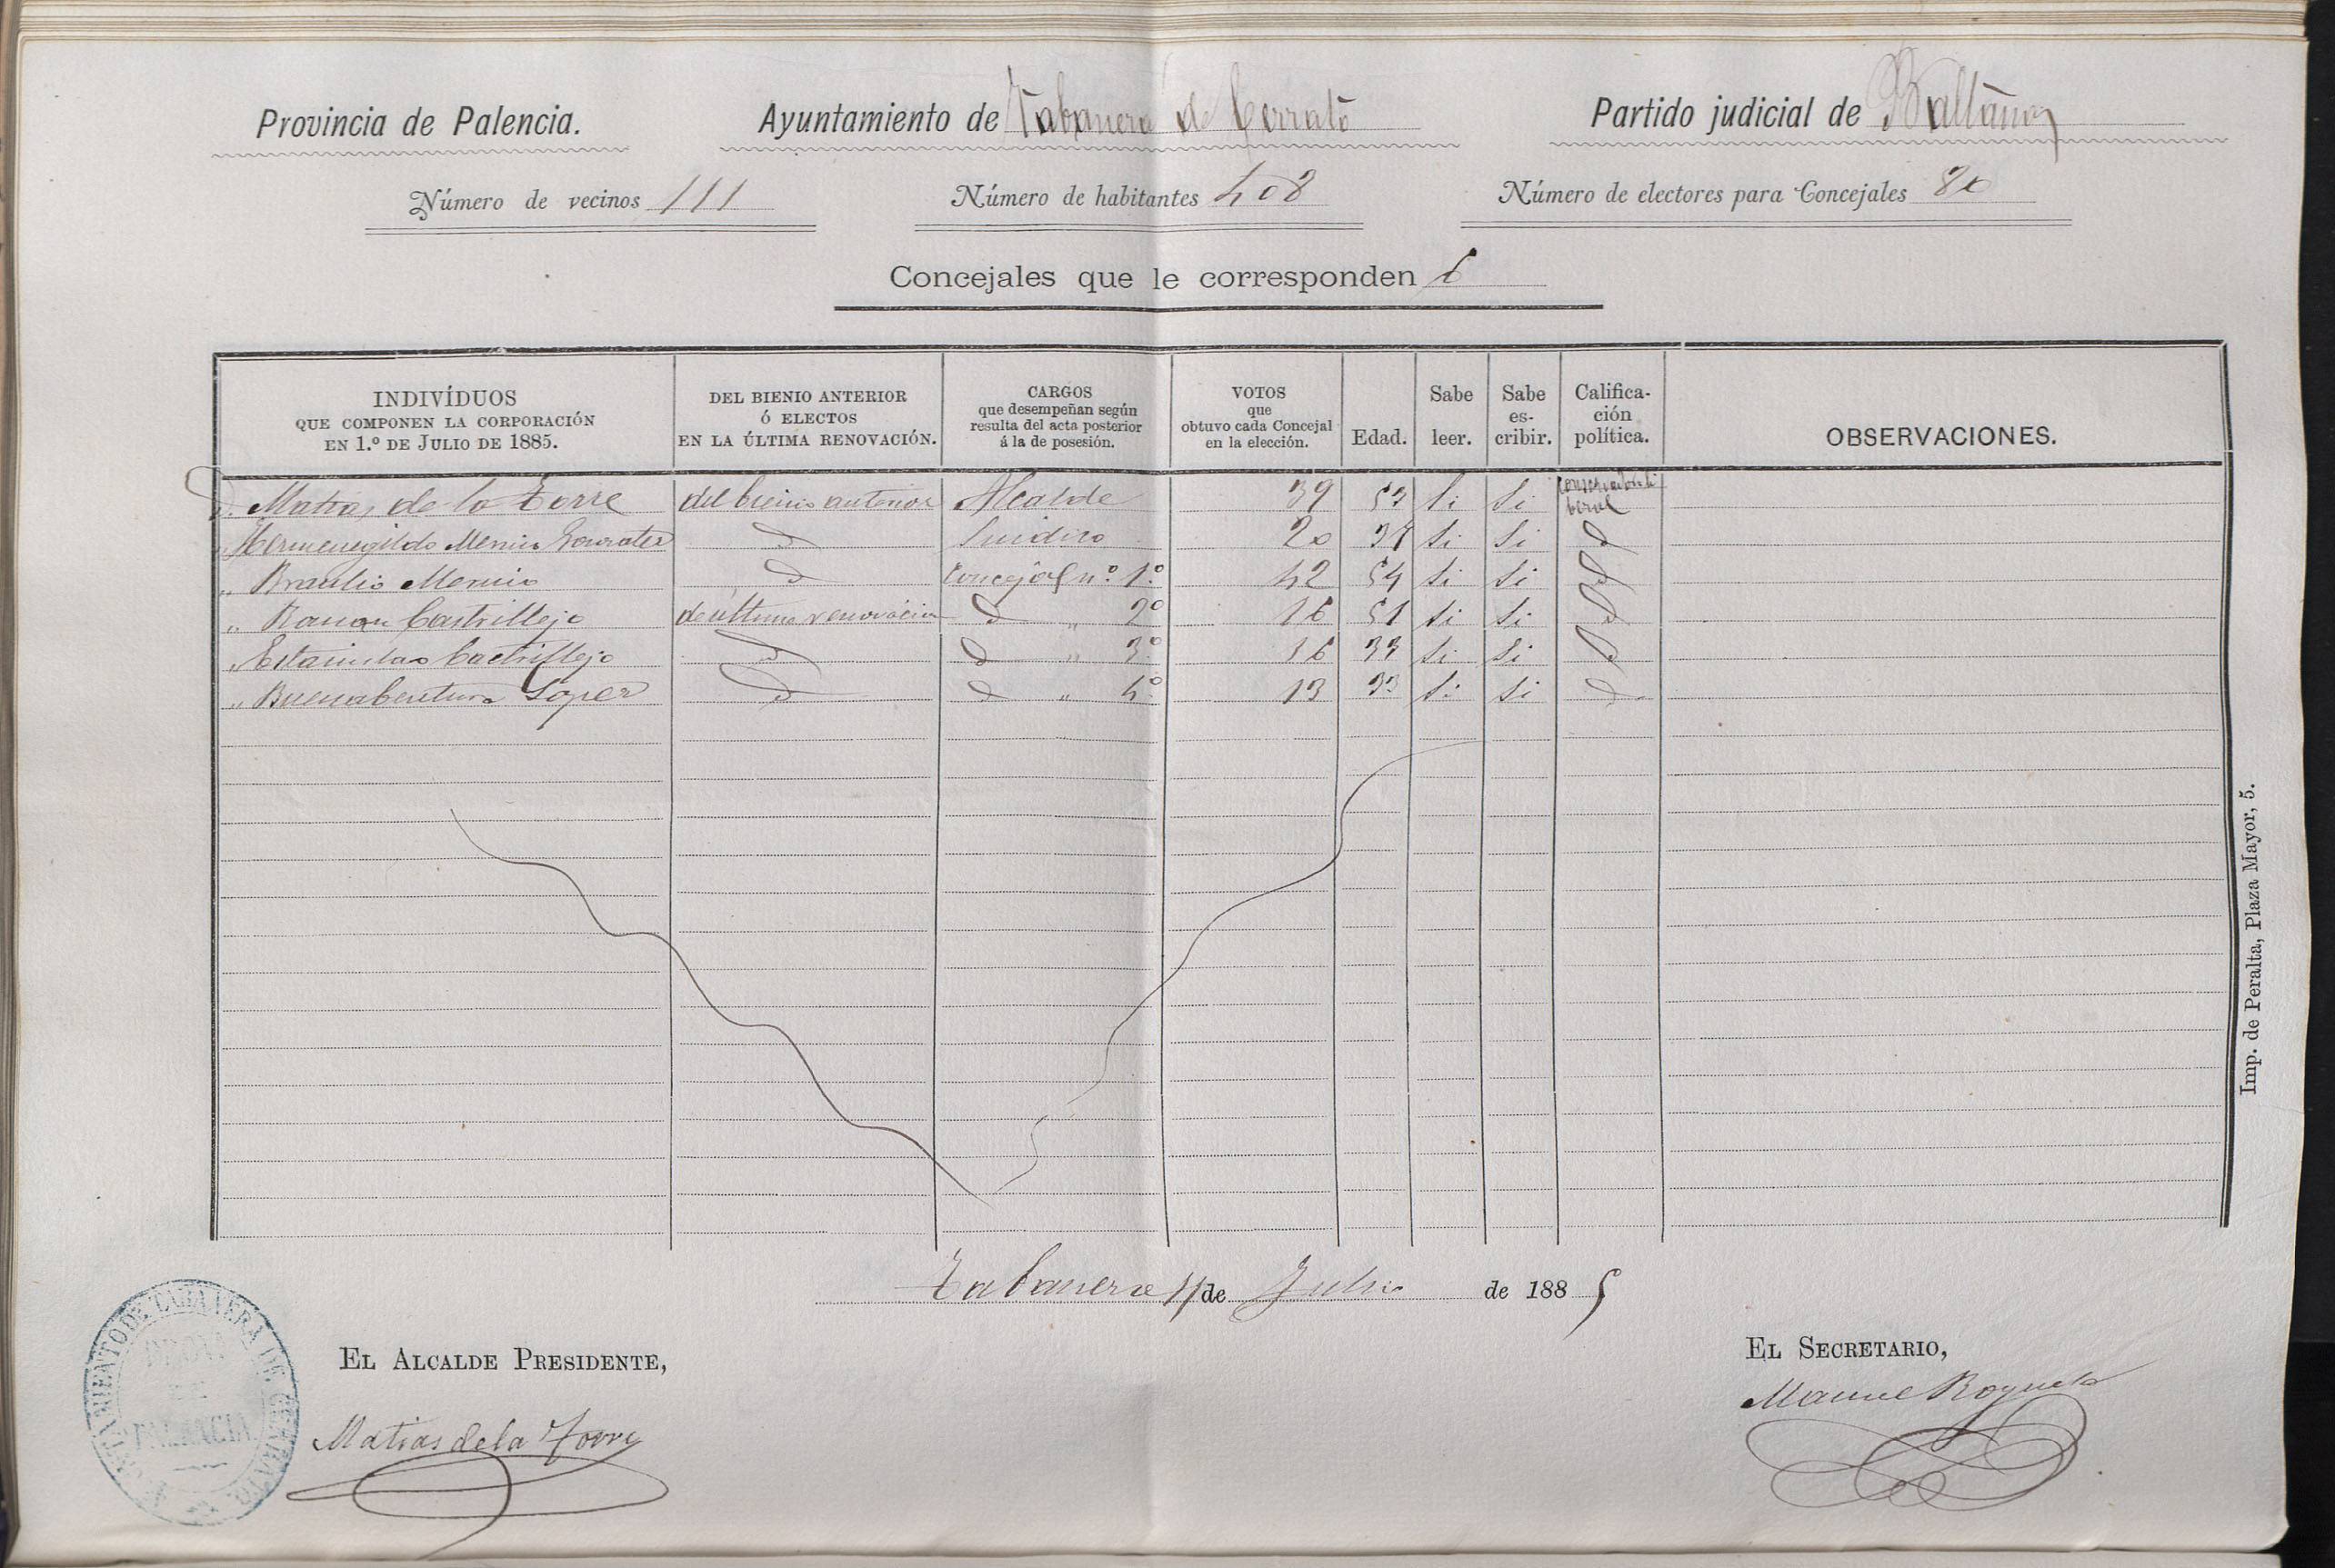 Provincia de Palencia. Ayuntamiento de Tabanera de Cerrato Partido judicial de Baltanas
Número de vecinos 111 Número de habitantes 408 Número de electores para Concejales 80
Concejales que le corresponden 6
INDIVÍDUOS QUE COMPONEN LA CORPORACIÓN EN 1.º DE JULIO DE 1885. DEL BIENIO ANTERIOR Ó ELECTOS EN LA ÚLTIMA RENOVACIÓN. CARGOS que desempeñan según resulta del acta posterior á la de posesión. VOTOS que obtuvo cada Concejal en la elección. Edad. Sabe leer. Sabe escribir. Calificación política. OBSERVACIONES.
D. Matias de la Torre del bienio anterior Alcalde 39 53 Si Si conservador liberal
" Hermenegildo Merino d Sindico 20 Si Si d
" Braulio Merino d Concejal nº 1º 42 54 Si Si d
" Ramon Castrillejo de ultima renovacion d " 2º 16 51 Si Si d
" Estanislao Castrillejo d d " 3º 16 33 Si Si d
" Buenabentura Lopez d d " 4º 13 33 Si Si d
Imp. de Peralta, Plaza Mayor, 5.
Tabanera 4 de Julio de 1885
EL ALCALDE PRESIDENTE, EL SECRETARIO,
Matias de la Torre Manuel
AYUNTAMIENTO DE TABANERA DE CERRATO
PROVA DE PALENCIA